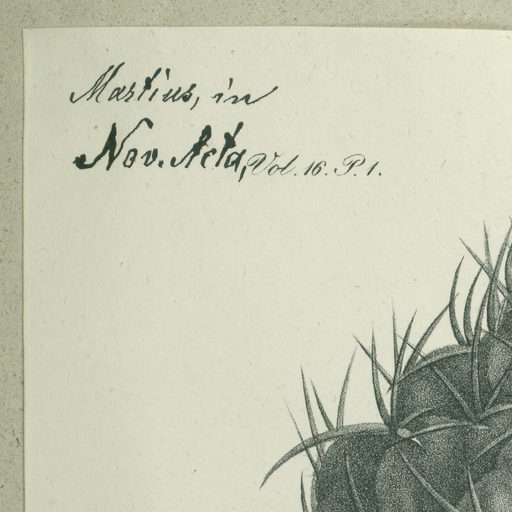 Martius, in
Nov. Acta, Vol. 16. P. 1.